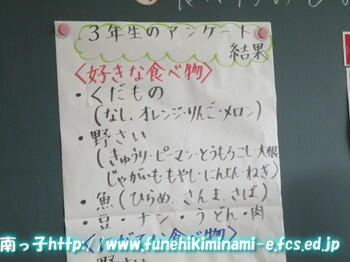 3年生のアンケート
結果
〈好きな食べ物〉
・くだもの
(なし、オレンジ・りんご・メロン)
・野さい
(きゅうり・ピーマン・とうもろこし・大根
じゃがいも・もやし・にんじん・ねぎ)
・魚(ひらめ、さんま、さば)
・豆・ナン・うどん・肉
な食べ物〉
野さい
南っ子http://www.funehikiminami-e.fcs.ed.jp